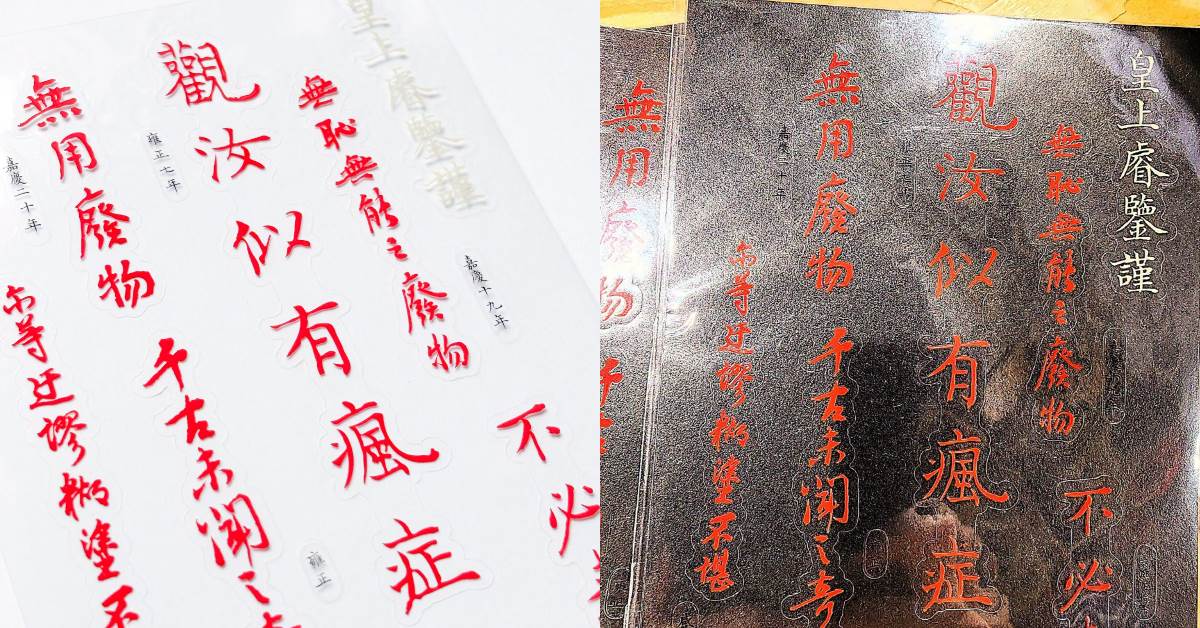 皇上睿鑒謹
不必
嘉慶十九年
無恥無能之廢物
觀汝似有瘋症
雍正
雍正七年
無用廢物
千古未聞之
嘉慶二十年
尓等迂謬糊塗不
皇上睿鑒謹
不必
無恥無能之廢物
觀汝似有瘋症
無用廢物
千古未聞之奇
嘉慶二十年
尓等迂謬糊塗不堪
無用廢物